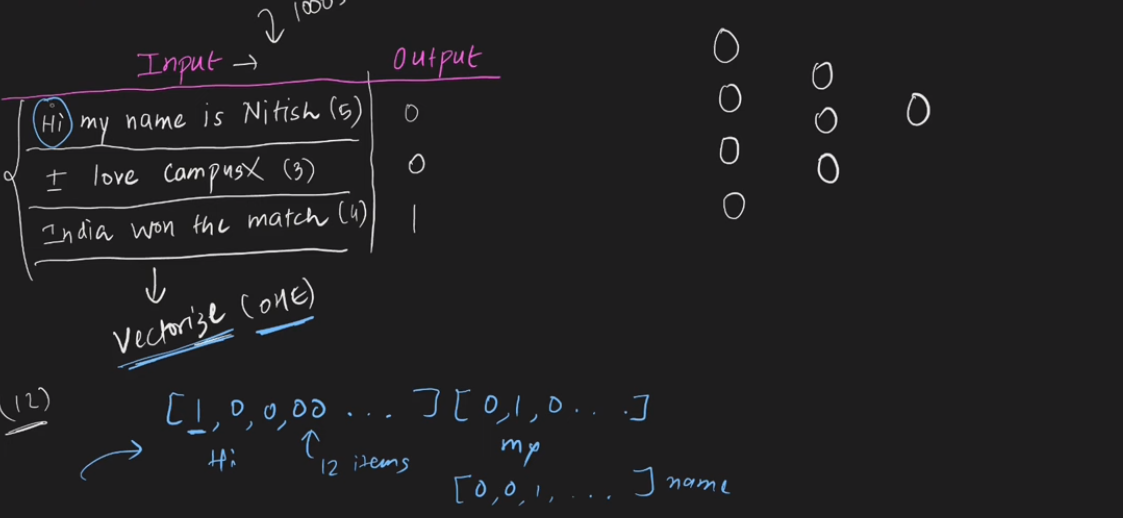 1000s
Input → Output
Hi my name is Nitish (5) 0
I love CampusX (3) 0
India won the match (4) 1
Vectorize (OHE)
(12)
[1, 0, 0, 00 ... ] [0, 1, 0 ... .]
Hi 12 items my
[0, 0, 1, ... ] name